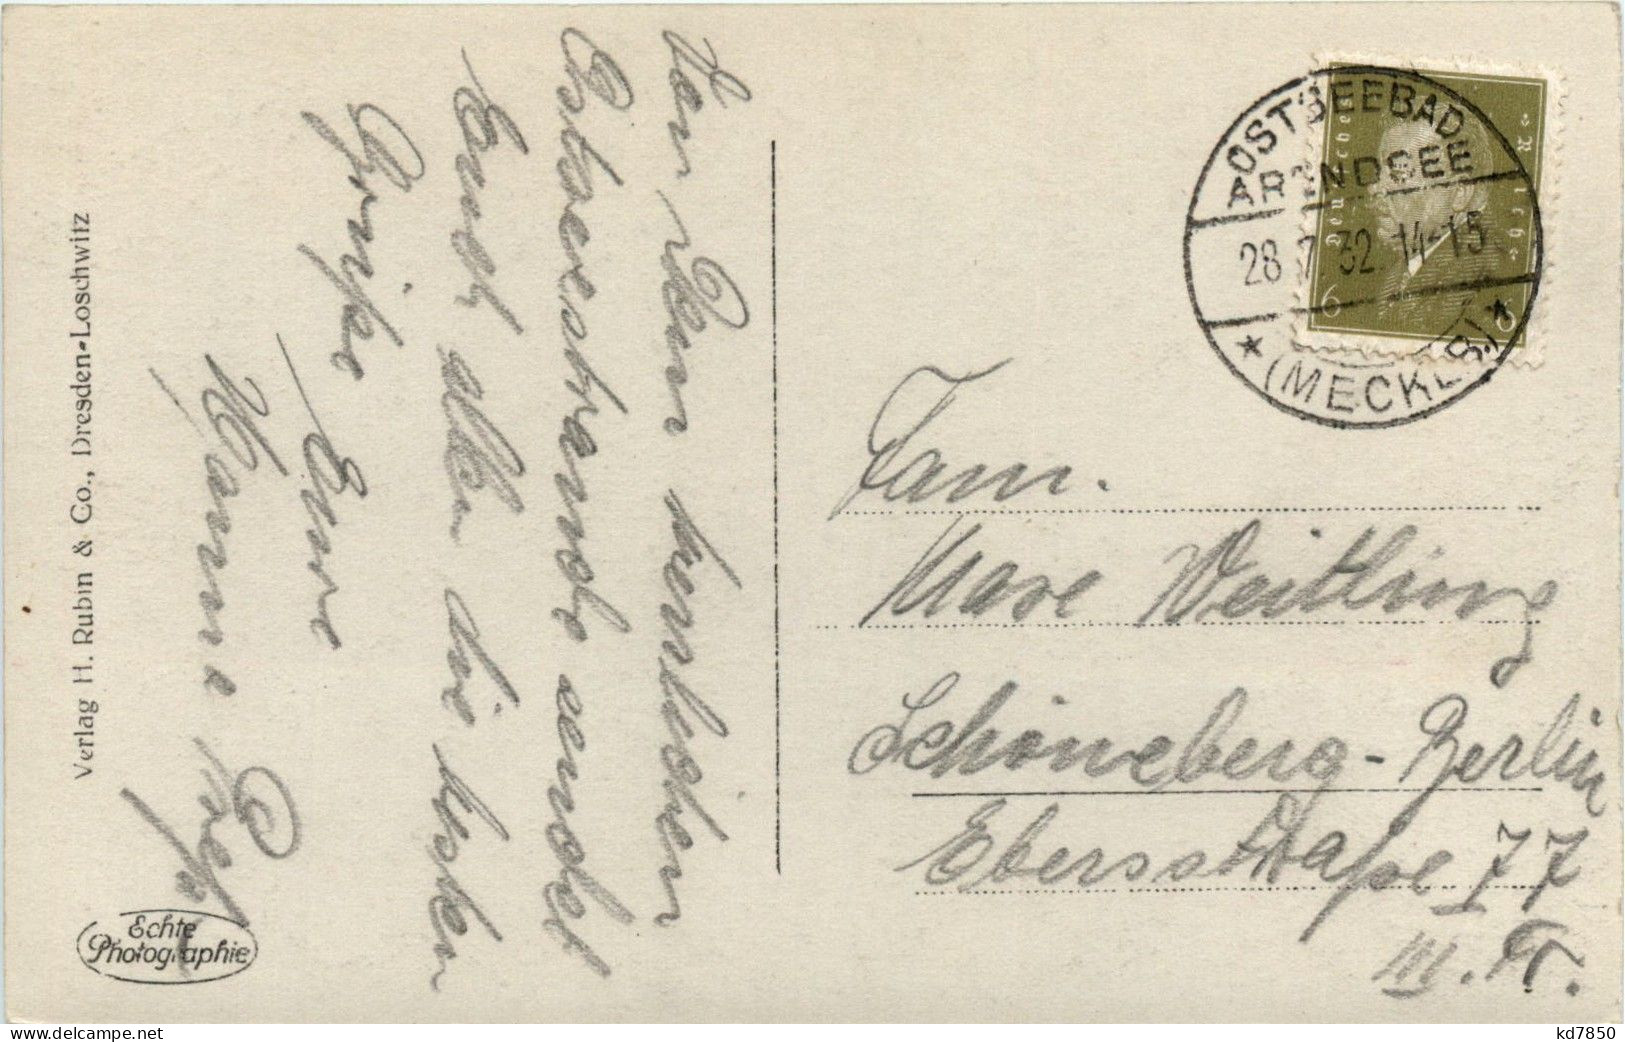 Von dem herrlichen
Ostseestrande sendet
Euch allen die besten
Grüße
Eure
Verlag H. Rubin & Co., Dresden-Loschwitz
Echte
Photographie
OSTSEEBAD
ARENDSEE
28.7.32 14-15
* (MECKLB.) *
Deutsches Reich
6 6
Fam.
Max Weitling
Schöneberg-Berlin
Ebersstraße 77
III. Tr.
www.delcampe.net
kd7850